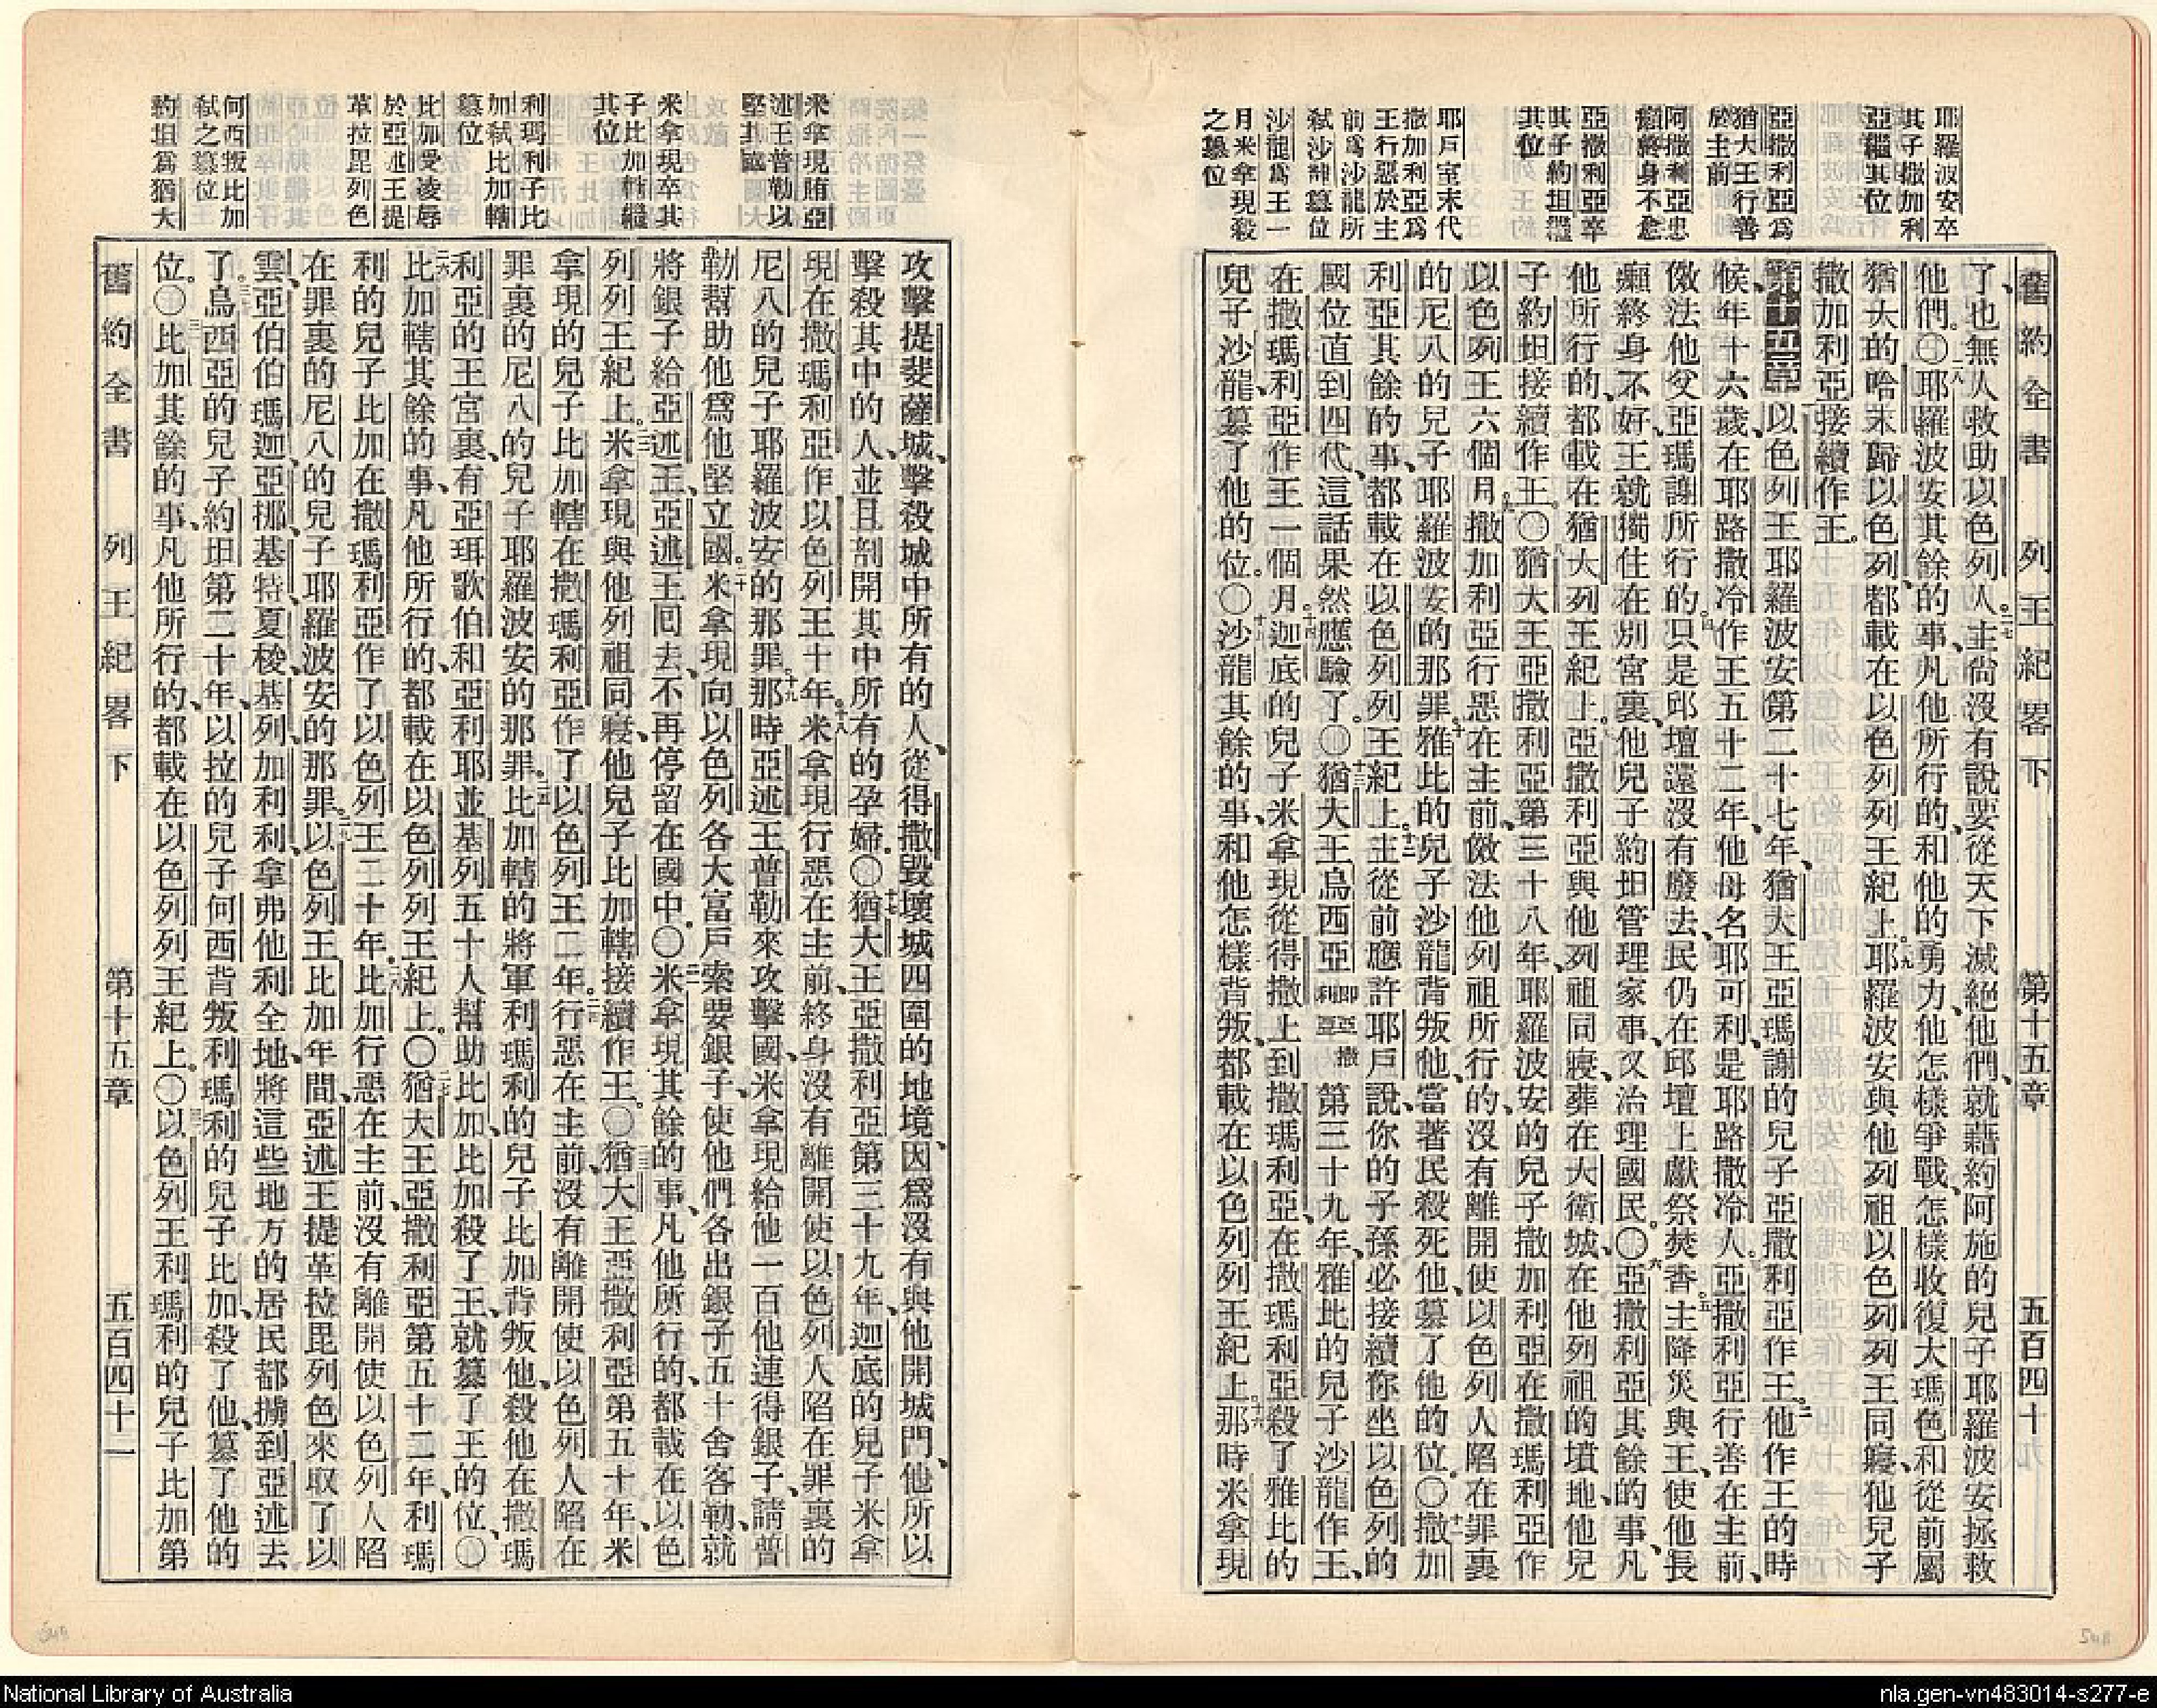 舊約全書 列王紀畧下 第十五章 五百四十一
耶羅波安卒
其子撒加利
亞繼其位
亞撒利亞爲
猶大王行善
於主前
阿撒利亞患
癩終身不愈
亞撒利亞卒
其子約坦繼
其位
耶戶室末代
撒加利亞爲
王行惡於主
前爲沙龍所
弑沙龍簒位
沙龍爲王一
月米拿現殺
之簒位
了、也無人救助以色列人。二七主尙沒有說要從天下滅絕他們、就藉約阿施的兒子耶羅波安拯救
他們。〇二八耶羅波安其餘的事、凡他所行的、和他的勇力、他怎樣爭戰、怎樣收復大瑪色和從前屬
猶大的哈末歸以色列、都載在以色列列王紀上。二九耶羅波安與他列祖以色列列王同寢、他兒子
撒加利亞接續作王。
第十五章以色列王耶羅波安第二十七年、猶大王亞瑪謝的兒子亞撒利亞作王。二他作王的時
候、年十六歲、在耶路撒冷作王五十二年、他母名耶可利、是耶路撒冷人。三亞撒利亞行善在主前、
傚法他父亞瑪謝所行的。四只是邱壇還沒有廢去、民仍在邱壇上獻祭焚香。五主降災與王、使他長
癩終身不好、王就獨住在別宮裏、他兒子約坦管理家事、又治理國民。〇六亞撒利亞其餘的事、凡
他所行的、都載在猶大列王紀上。七亞撒利亞與他列祖同寢、葬在大衛城、在他列祖的墳地、他兒
子約坦接續作王。〇八猶大王亞撒利亞第三十八年、耶羅波安的兒子撒加利亞在撒瑪利亞作
以色列王六個月。九撒加利亞行惡在主前、傚法他列祖所行的、沒有離開使以色列人陷在罪裏
的尼八的兒子耶羅波安的那罪。十雅比的兒子沙龍背叛他、當著民殺死他、簒了他的位。〇十一撒加
利亞其餘的事、都載在以色列列王紀上。十二主從前應許耶戶說、你的子孫必接續你坐以色列的
國位、直到四代、這話果然應驗了。〇十三猶大王烏西亞卽亞撒利亞第三十九年、雅比的兒子沙龍作王、
在撒瑪利亞作王一個月。十四迦底的兒子米拿現從得撒上到撒瑪利亞、在撒瑪利亞殺了雅比的
兒子沙龍、簒了他的位。〇十五沙龍其餘的事、和他怎樣背叛、都載在以色列列王紀上。十六那時米拿現
米拿現賄亞
述王普勒以
堅其國
米拿現卒其
子比加轄繼
其位
利瑪利子比
加弑比加轄
簒位
比加受凌辱
於亞述王提
革拉毘列色
何西叛比加
弑之簒位
約坦爲猶大
攻擊提斐薩城、擊殺城中所有的人、從得撒毀壞城四圍的地境、因爲沒有與他開城門、他所以
擊殺其中的人、並且剖開其中所有的孕婦。〇十七猶大王亞撒利亞第三十九年、迦底的兒子米拿
現在撒瑪利亞作以色列王十年。十八米拿現行惡在主前、終身沒有離開使以色列人陷在罪裏的
尼八的兒子耶羅波安的那罪。十九那時亞述王普勒來攻擊國、米拿現給他一百他連得銀子、請普
勒幫助他、爲他堅立國。二十米拿現向以色列各大富戶索要銀子、使他們各出銀子五十舍客勒、就
將銀子給亞述王、亞述王回去、不再停留在國中。〇二一米拿現其餘的事、凡他所行的、都載在以色
列列王紀上。二二米拿現與他列祖同寢、他兒子比加轄接續作王。〇二三猶大王亞撒利亞第五十年、米
拿現的兒子比加轄在撒瑪利亞作了以色列王二年。二四行惡在主前、沒有離開使以色列人陷在
罪裏的尼八的兒子耶羅波安的那罪。二五比加轄的將軍利瑪利的兒子比加背叛他、殺他在撒瑪
利亞的王宮裏、有亞珥歌伯和亞利耶並基列五十人幫助比加、比加殺了王、就簒了王的位。〇
二六比加轄其餘的事、凡他所行的、都載在以色列列王紀上。〇二七猶大王亞撒利亞第五十二年、利瑪
利的兒子比加在撒瑪利亞作了以色列王二十年。二八比加行惡在主前、沒有離開使以色列人陷
在罪裏的尼八的兒子耶羅波安的那罪。二九以色列王比加年間、亞述王提革拉毘列色來取了以
雲、亞伯伯瑪迦、亞挪、基特、夏梭、基列、加利利、拿弗他利全地、將這些地方的居民都擄到亞述去
了。三十烏西亞的兒子約坦第二十年、以拉的兒子何西背叛利瑪利的兒子比加、殺了他、簒了他的
位。〇三一比加其餘的事、凡他所行的、都載在以色列列王紀上。〇三二以色列王利瑪利的兒子比加第
舊約全書 列王紀畧下 第十五章 五百四十二
National Library of Australia
nla.gen-vn483014-s277-e